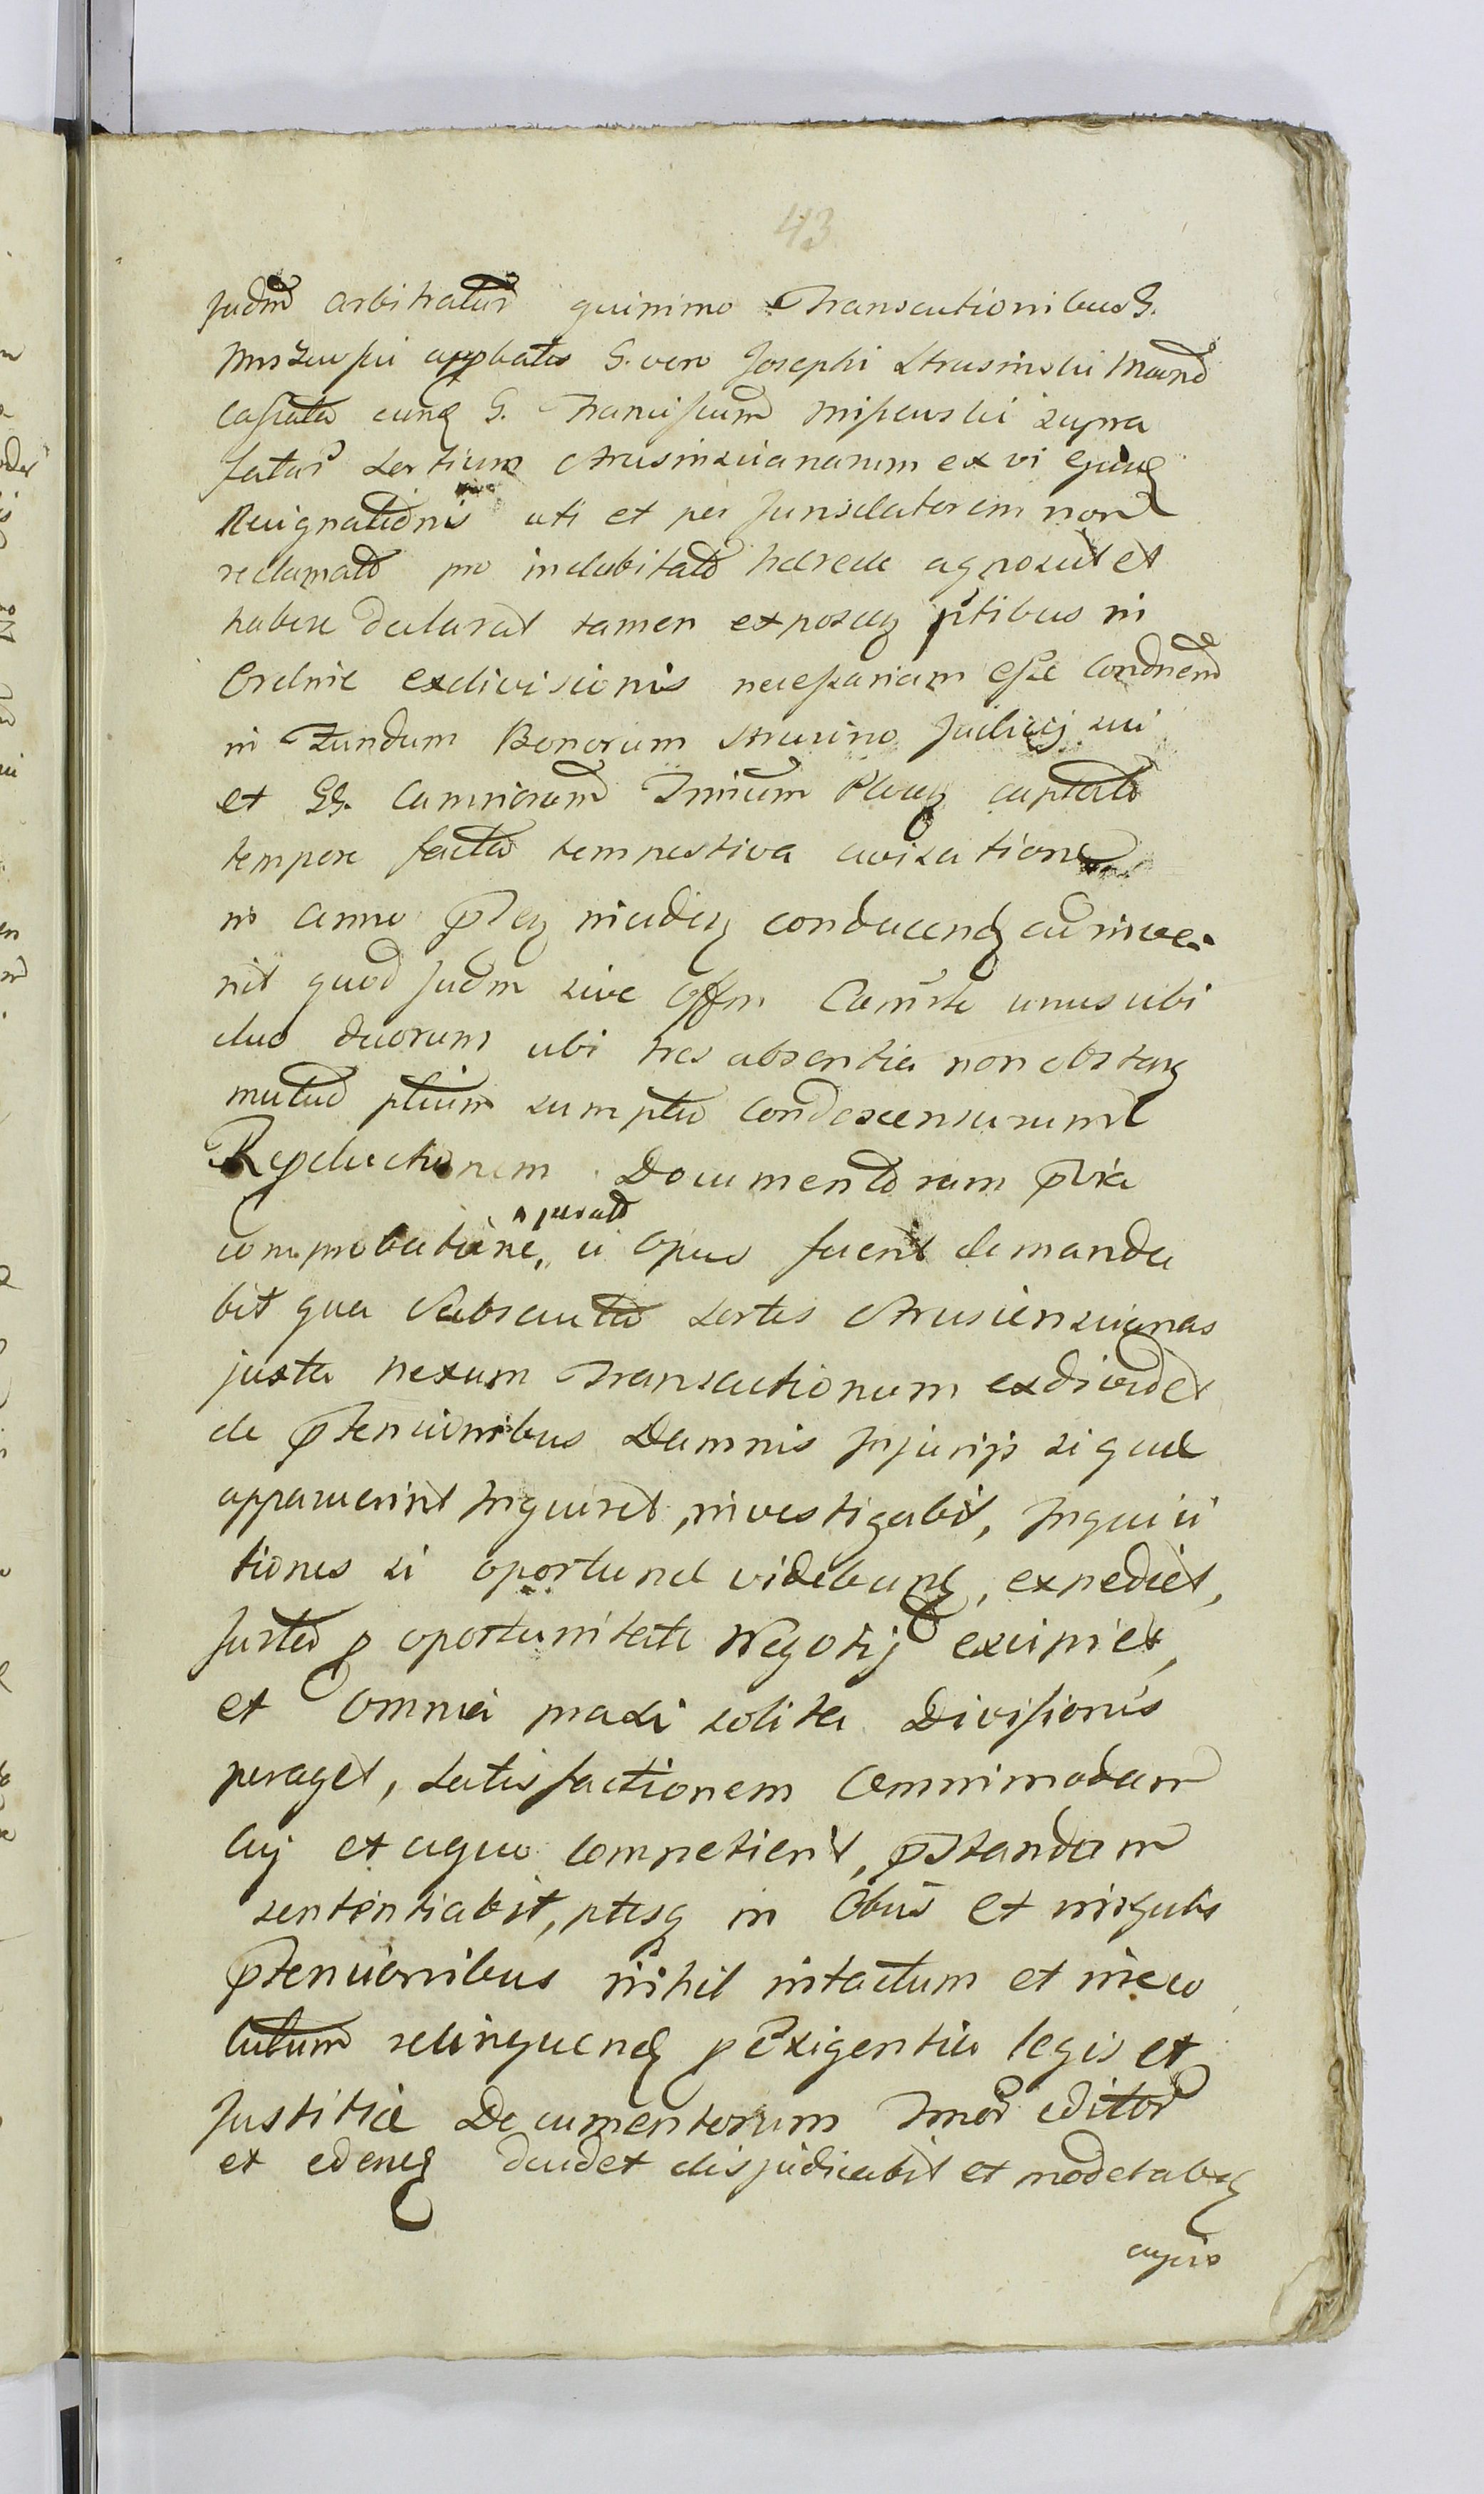 43
Judm arbitratur quinimo Transactionibus G.
approbatis G. vero Josephi Strusinski Mand
Cassata cunq G. Franciscum Miszewski supra
fatar Sortium Strusinscianarum ex vi ejusq
Resignationis uti et per Junselatorem non
reclamato pro indubitato haerede agnoscit et
habere declarat tamen exposcen ptibus in
Ordine exdivisionis necessariam esse Condnend
in Fundum Bonorum Strusino Judicij sui
et GG. Camriorum Trium Plocen captato
tempore facta tempestiva avisatione
in anno pten conducend adinve-
nit quod Judm sive Offm Camrle unus ubi
duo duorum ubi tres absentia non obstan
mutuo ptium sumptu condescensurum
Reproductionem Documentorum pvia
comprobatione, si opus fuerit demanda
jurato
bit qua subsecuta sortes Strusienscianas
juxta nexum Transactionum exdividet
de ptensionibus Damnis Injurijs si quae
apparuerint Inquiret, investigabit, Inquisi
tiones si oportunae videbunt, expediet,
Jurta p oportunitate Negotij excipiet,
et omnia praxi solita Divisionis
peraget, satisfactionem omnimodam
cuj et a quo competierit, pstandam
sententiabit, ptesq in obus et singulis
ptensionibus nihil intactum et insco
lutum relinquend p Exigentia legis et
Justitiae Documentorum Inter editor
et edend decidet disjudicabit et
cujus